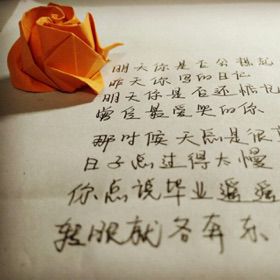 明天你是否会想起
昨天你写的日记
明天你是否还惦记
曾经最爱哭的你
那时候天总是很
日子总过得太慢
你总说毕业遥遥
转眼就各奔东